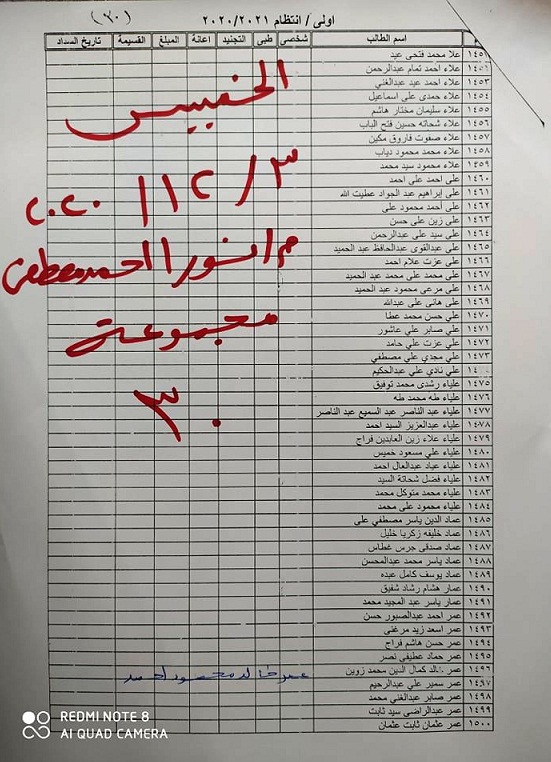 اولى / انتظام ٢٠٢٠/٢٠٢١
(٦٠)
م اسم الطالب شخصي طبى التجنيد اعانة المبلغ القسيمة تاريخ السداد
١٤٥١ علا محمد فتحى عيد
١٤٥٢ علاء احمد تمام عبدالرحمن
١٤٥٣ علاء احمد عيد عبدالغني
١٤٥٤ علاء حمدى على اسماعيل
١٤٥٥ علاء سليمان مختار هاشم
١٤٥٦ علاء شحاته حسين فتح الباب
١٤٥٧ علاء صفوت فاروق مكين
١٤٥٨ علاء محمد محمود دياب
١٤٥٩ علاء محمود سيد محمد
١٤٦٠ على احمد على احمد
١٤٦١ على إبراهيم عبد الجواد عطيت الله
١٤٦٢ على أحمد محمود على
١٤٦٣ على زين على حسن
١٤٦٤ على سيد على عبدالرحمن
١٤٦٥ على عبدالقوى عبدالحافظ عبد الحميد
١٤٦٦ على عزت علام احمد
١٤٦٧ على محمد على محمد عبد الحميد
١٤٦٨ على مرعى محمود عبد الحميد
١٤٦٩ على هانى على عبدالله
١٤٧٠ علي حسن محمد عطا
١٤٧١ علي صابر علي عاشور
١٤٧٢ علي عزت علي حامد
١٤٧٣ علي مجدي علي مصطفي
علي نادي علي عبدالحكيم
١٤٧٥ علياء رشدى محمد توفيق
١٤٧٦ علياء طه محمد طه
١٤٧٧ علياء عبد الناصر عبد السميع عبد الناصر
١٤٧٨ علياء عبدالعزيز السيد احمد
١٤٧٩ علياء علاء زين العابدين فراج
١٤٨٠ علياء علي مسعود خميس
١٤٨١ علياء عياد عبدالعال احمد
١٤٨٢ علياء فضل شحاتة السيد
١٤٨٣ علياء محمد متوكل محمد
١٤٨٤ علياء محمود على محمد
١٤٨٥ عماد الدين ياسر مصطفي على
١٤٨٦ عماد خليفه زكريا خليل
١٤٨٧ عماد صدقى جرس غطاس
١٤٨٨ عماد ياسر محمد عبدالمحسن
١٤٨٩ عماد يوسف كامل عبده
١٤٩٠ عمار هشام رشاد شفيق
١٤٩١ عمار ياسر عبد المجيد محمد
١٤٩٢ عمر احمد عبدالصبور حسن
١٤٩٣ عمر اسعد زيد مرغنى
١٤٩٤ عمر حسن هاشم فراج
١٤٩٥ عمر حماد عطيفى نصر
١٤٩٦ عمر خالد كمال الدين محمد زوين
١٤٩٧ عمر سمير علي عبدالرحيم
١٤٩٨ عمر صابر عبدالغني محمد
١٤٩٩ عمر عبدالراضى سيد ثابت
١٥٠٠ عمر عثمان ثابت عثمان
الخميس
٣ / ١٢ / ٢٠٢٠
مجموعة
٣٠
عمر خالد محمود احمد
REDMI NOTE 8
AI QUAD CAMERA